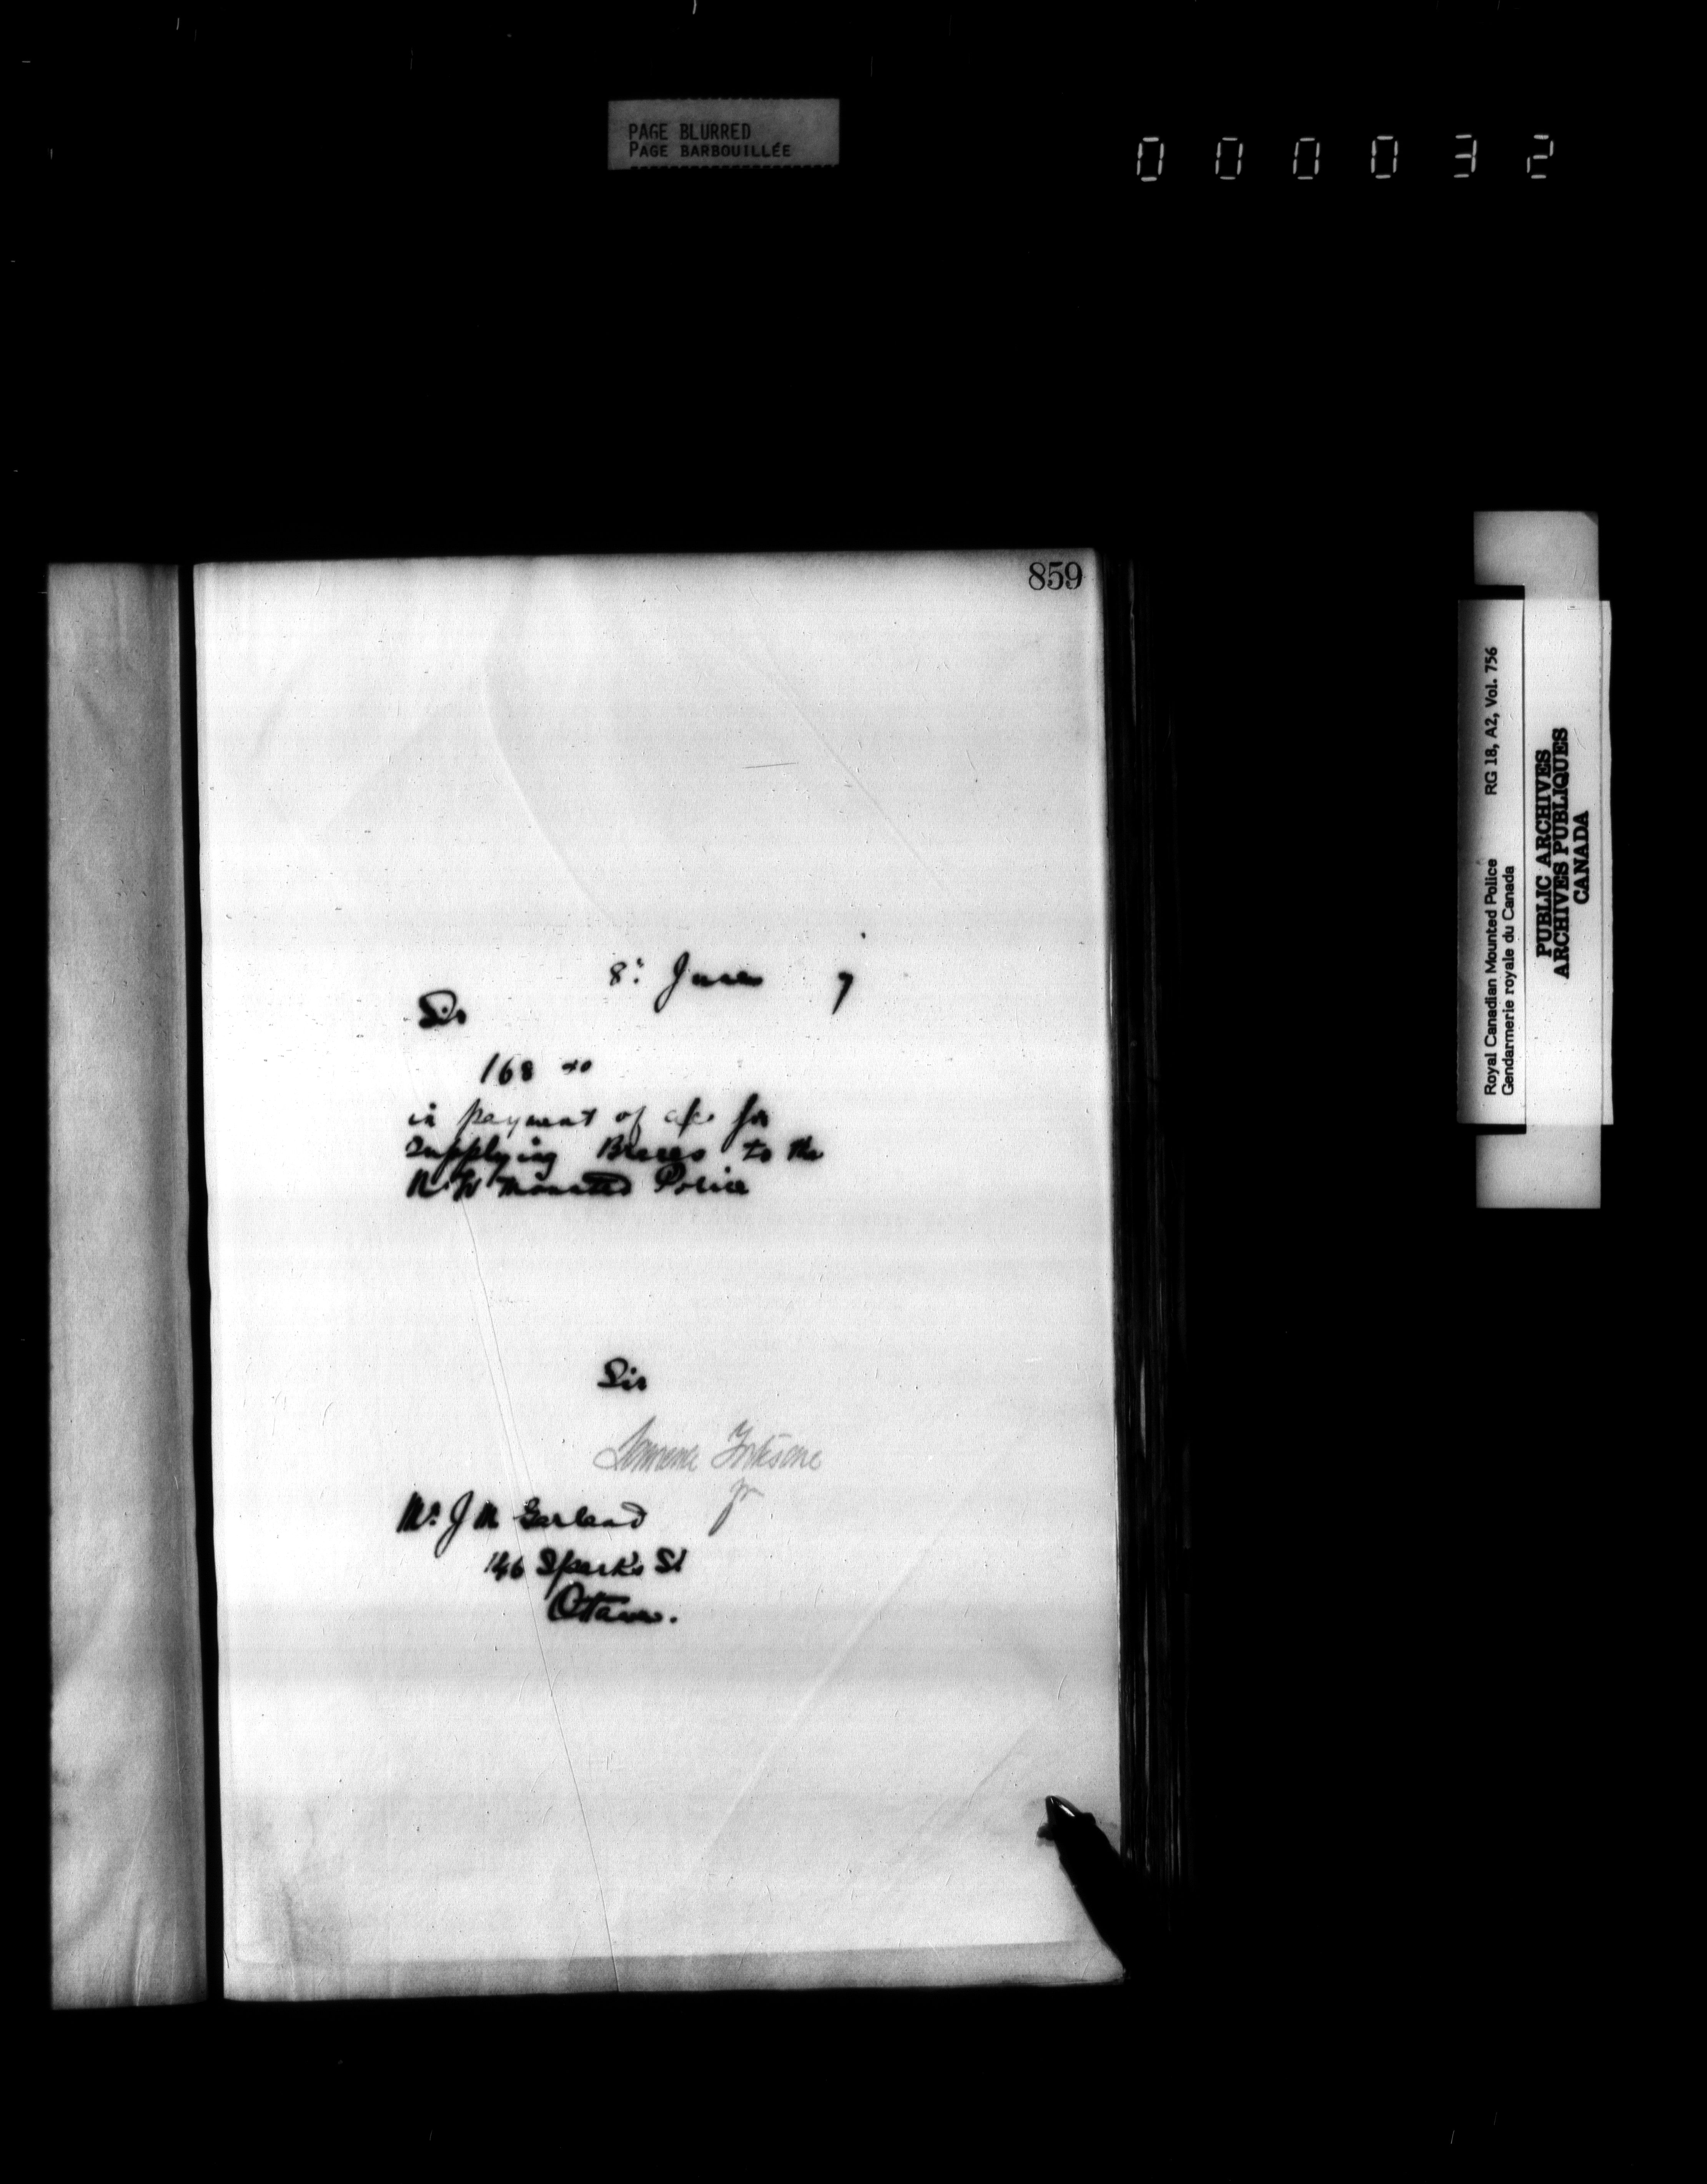 PAGE BLURRED
PAGE BARBOUILLÉE
000032
859
8: June 7
Sir
168
in payment of a/c for
supplying Braces to the
N.W Mounted Police
Sir
Fortescue
Mr. J M Garland
146 Sparks St
Ottawa.
Royal Canadian Mounted Police RG 18, A2, Vol. 756
Gendarmerie royale du Canada
PUBLIC ARCHIVES
ARCHIVES PUBLIQUES
CANADA